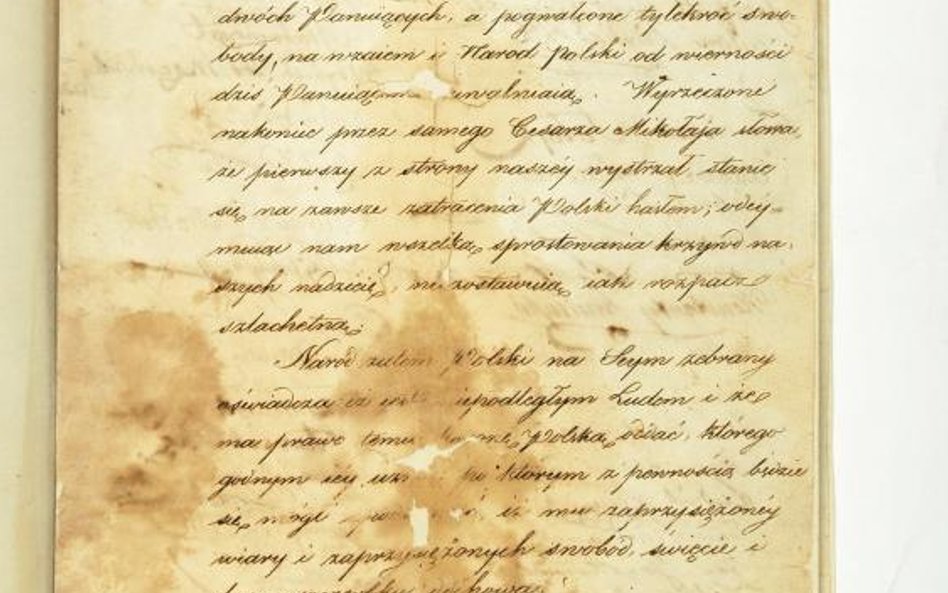 dwóch Panuiących, a pogwałcone tylekroć swo-
body, na wzaiem i Naród Polski od wierności
dziś Panuiące uwalniaią. Wyrzeczone
nakoniec przez samego Cesarza Mikołaja słowa,
że pierwszy z strony naszéy wystrzał, stanie
się na zawsze zatracenia Polski hasłem; odey-
muiąc nam wszelką sprostowania krzywd na-
szych nadzieię, nie zostawuią iak rozpacz
szlachetną.
Naród zatem Polski na Seym zebrany
oświadcza iż iest niepodległym Ludem i że
ma prawo temu Polską oddać, którego
godnym iéy uzna, po którym z pewnością będzie
się mógł, iż mu zaprzysiężonéy
wiary i zaprzysiężonych swobod, święcie i